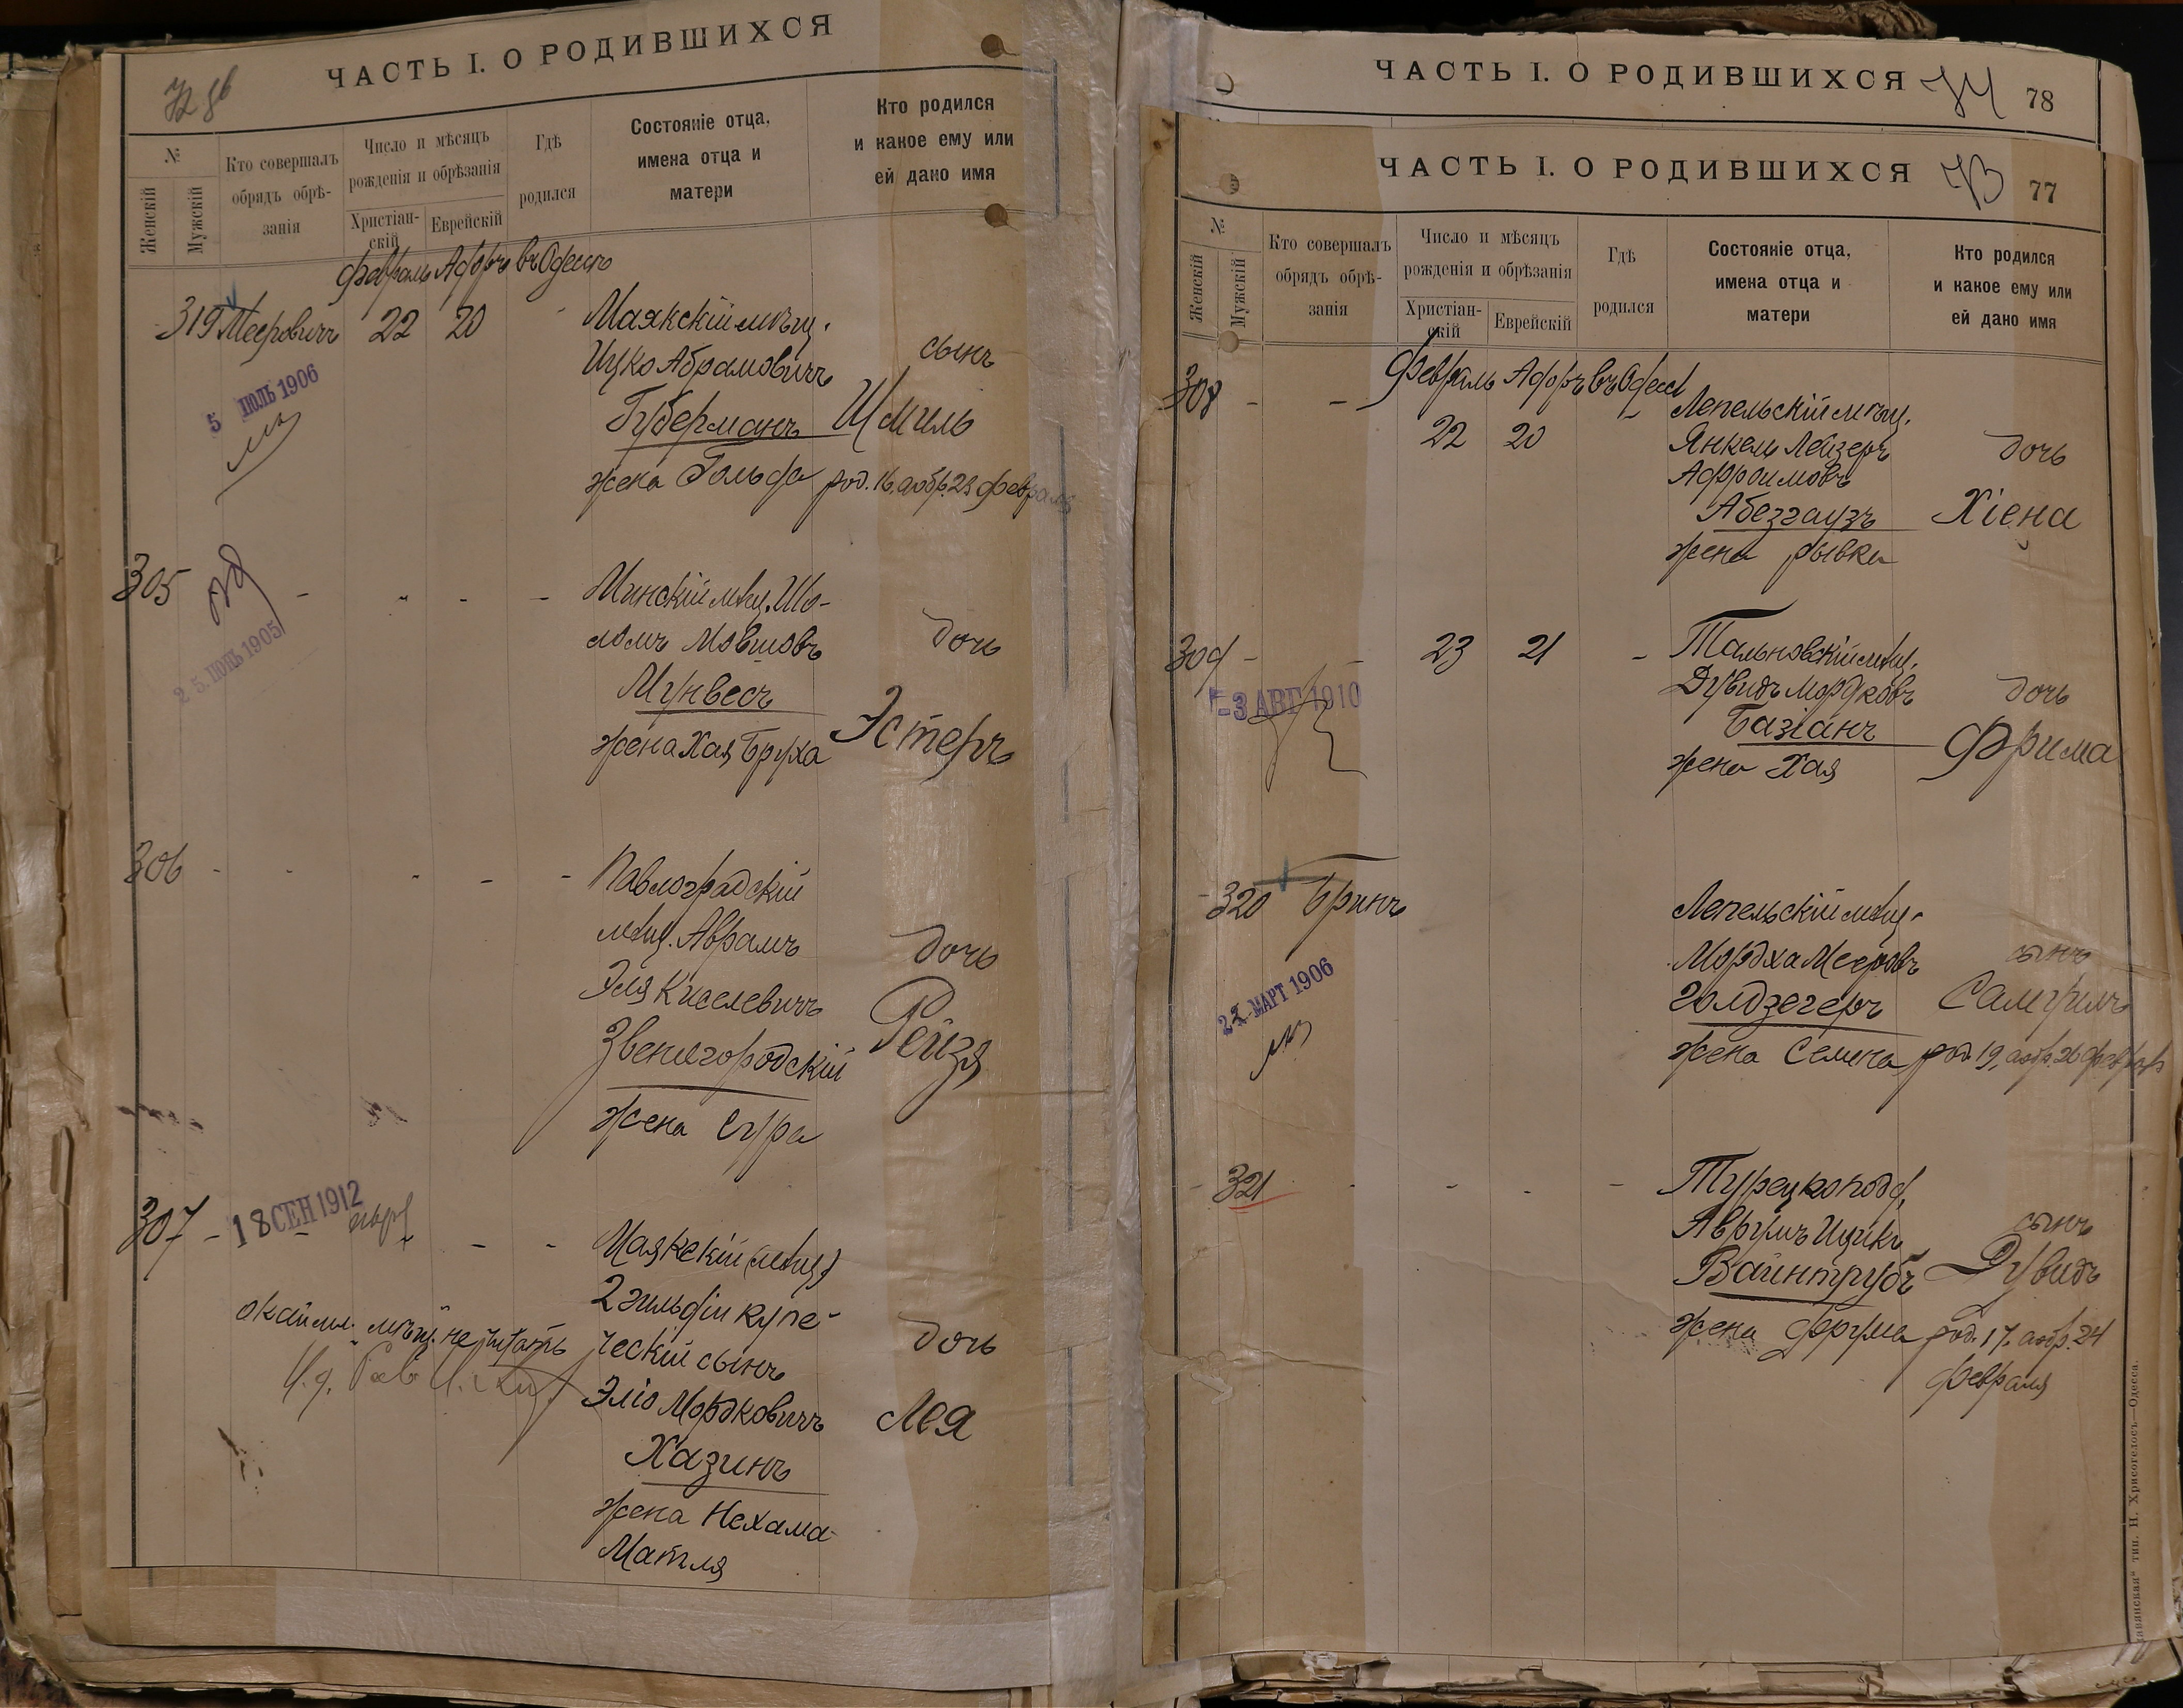 ЧАСТЬ I. О РОДИВШИХСЯ
№
Женскій
Мужскій
Кто совершалъ
обрядъ обрѣ-
занія
Число и мѣсяцъ
рожденія и обрѣзанія
Христіан-
скій
Еврейскій
Гдѣ
родился
Состояніе отца,
имена отца и
матери
Кто родился
и какое ему или
ей дано имя
Февраль Адоръ въ Одессѣ
319 Мееровичъ 22 20
Маякскій мѣщ.
Ицко Абрамовичъ
Губерманъ
жена Гольда
сынъ
Шмиль
род. 16, аобр. 23 февраля
5 ІЮЛЬ 1906
305
25. ІЮНЬ 1905
Минскій мѣщ. Шо-
ломъ Мовшовъ
Мунвесъ
жена Хая Бруха
дочь
Эстеръ
306
Павлоградскій
мѣщ. Аврамъ
Эля Киселевичъ
Звенигородскій
жена Сура
дочь
Рейзя
307
18 СЕН 1912
Маякскій (мѣщ.)
2 гильдіи купе-
ческій сынъ
Эліо Мордковичъ
Хазинъ
жена Нехама-
Матля
дочь
Лея
мѣщ. не читать
ЧАСТЬ I. О РОДИВШИХСЯ 74 78
ЧАСТЬ I. О РОДИВШИХСЯ 73 77
№
Женскій
Мужскій
Кто совершалъ
обрядъ обрѣ-
занія
Число и мѣсяцъ
рожденія и обрѣзанія
Христіан-
скій
Еврейскій
Гдѣ
родился
Состояніе отца,
имена отца и
матери
Кто родился
и какое ему или
ей дано имя
Февраль Адоръ въ Одессѣ
308
22 20
Лепельскій мѣщ.
Янкель Лейзеръ
Афроимовъ
Абезгаузъ
жена Рывка
дочь
Хіена
309 23 21
-3 АВГ 1910
Тальновскій мѣщ.
Дувидъ Мордковъ
Базіанъ
жена Хая
дочь
Фрима
320 Бринъ
22 МАРТ 1906
Лепельскій мѣщ.
Мордха Мееровъ
Голдзегеръ
жена Семена
сынъ
род. 19, аобр. 26 февраля
321
Турецкоподд.
Аврумъ Ицикъ
Вайнтрубъ
жена Фрума
сынъ
Дувидъ
род. 17, аобр. 24
февраля
тип. Н. Хрисогелосъ—Одесса.